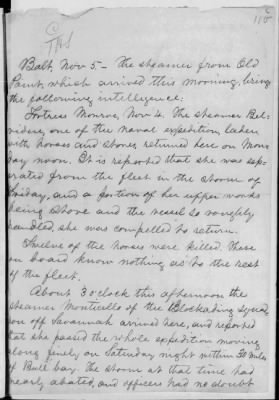 116
Balt, Nov 5 - The steamer from Old
Point, which arrived this morning, brings
the following intelligence:
Fortress Monroe, Nov 4. The steamer Bel-
videre, one of the naval expedition, laden
with horses and stores returned here on Mon
day noon. It is reported that she was sep-
erated from the fleet in the storm of
Friday, and a portion of her upper works
being stove and the vessel so roughly
handled, she was compelled to return.
Twelve of the horses were killed. Those
on board know nothing as to the rest
of the fleet.
About 3 oclock this afternoon the
steamer Monticello of the Blockading squad
ron off Savannah arrived here, and reported
that she passed the whole expedition moving
along finely on Saturday night within 30 miles
of Bull bay. The storm at that time had
nearly abated, and officers had no doubt